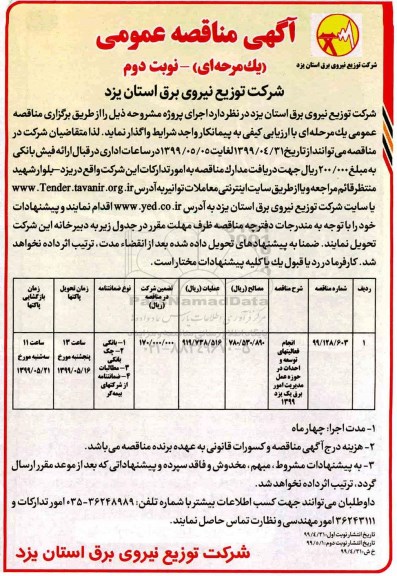 آگهی مناقصه عمومی
(یك مرحله‌ای) – نوبت دوم
شرکت توزیع نیروی برق استان یزد
شرکت توزیع نیروی برق استان یزد
شرکت توزیع نیروی برق استان یزد در نظر دارد اجرای پروژه مشروحه ذیل را از طریق برگزاری مناقصه
عمومی یك مرحله‌ای با ارزیابی کیفی به پیمانکار واجد شرایط واگذار نماید. لذا متقاضیان شرکت در
مناقصه می‌توانند از تاریخ ۱۳۹۹/۰۴/۳۱ لغایت ۱۳۹۹/۰۵/۰۵ در ساعات اداری در قبال ارائه فیش بانکی
به مبلغ ۲۰۰/۰۰۰ ریال جهت دریافت مدارك مناقصه به امور تدارکات این شرکت واقع در یزد- بلوار شهید
منتظر قائم مراجعه و یا از طریق سایت اینترنتی معاملات توانیر به آدرس www.Tender.tavanir.org.ir
یا سایت شرکت توزیع نیروی برق استان یزد به آدرس www.yed.co.ir اقدام نمایند و پیشنهادات
خود را با توجه به مندرجات دفترچه مناقصه ظرف مهلت مقرر در جدول زیر به دبیرخانه این شرکت
تحویل نمایند. ضمنا به پیشنهادهای تحویل داده شده بعد از انقضاء مدت، ترتیب اثر داده نخواهد
شد. کارفرما در رد یا قبول یك یا کلیه پیشنهادات مختار است.
ردیف شماره مناقصه شرح مناقصه مصالح (ریال) عملیات (ریال) تضمین شرکت در مناقصه (ریال) نوع ضمانتنامه زمان تحویل پاکتها زمان بازگشایی پاکتها
۱ ۹۹/۱۲۸/۶۰۳ انجام فعالیتهای توسعه و احداث در حوزه عمل مدیریت امور برق یک یزد ۱۳۹۹ ۷۸۰/۵۳۰/۸۹۰ ۹۱۹/۷۳۸/۵۱۶ ۱۷۰/۰۰۰/۰۰۰ ۱- بانکی ۲- چک بانکی ۳- مطالبات ۴- ضمانتنامه از شرکتهای بیمه‌گر ساعت ۱۳ پنجشنبه مورخ ۱۳۹۹/۰۵/۱۶ ساعت ۱۱ سه‌شنبه مورخ ۱۳۹۹/۰۵/۲۱
۱- مدت اجرا: چهار ماه
۲- هزینه درج آگهی مناقصه و کسورات قانونی به عهده برنده مناقصه می‌باشد.
۳- به پیشنهادات مشروط، مبهم، مخدوش و فاقد سپرده و پیشنهاداتی که بعد از موعد مقرر ارسال
گردد، ترتیب اثر داده نخواهد شد.
داوطلبان می‌توانند جهت کسب اطلاعات بیشتر با شماره تلفن: ۳۶۲۴۸۹۸۹-۰۳۵ امور تدارکات و
۳۶۲۴۳۱۱۱ امور مهندسی و نظارت تماس حاصل نمایند.
تاریخ انتشار نوبت اول: ۹۹/۴/۳۱
تاریخ انتشار نوبت دوم: ۹۹/۵/۱
خ ش: ۹۹/۴/۳۱
شرکت توزیع نیروی برق استان یزد